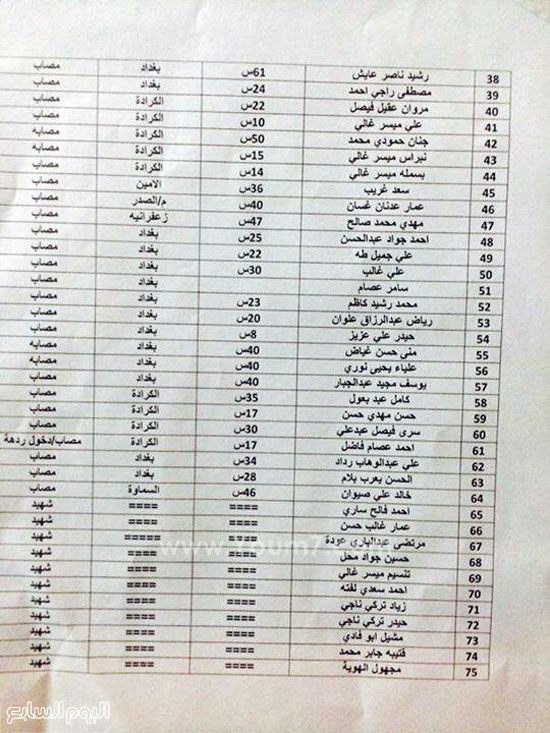 38 رشيد ناصر عايش 61س بغداد مصاب
39 مصطفى راجي احمد 24س بغداد مصاب
40 مروان عقيل فيصل 22س الكرادة مصاب
41 علي ميسر غالي 10س الكرادة مصاب
42 جنان حمودي محمد 50س الكرادة مصابه
43 نبراس ميسر غالي 15س الكرادة مصاب
44 بسمله ميسر غالي 14س الكرادة مصابه
45 سعد غريب 36س الامين مصاب
46 عمار عدنان غسان 40س م/الصدر مصاب
47 مهدي محمد صالح 47س زعفرانيه مصاب
48 احمد جواد عبدالحسن 25س بغداد مصاب
49 علي جميل طه 22س بغداد مصاب
50 علي غالب 30س بغداد مصاب
51 سامر عصام بغداد مصاب
52 محمد رشيد كاظم 23س بغداد مصاب
53 رياض عبدالرزاق علوان 20س بغداد مصاب
54 حيدر علي عزيز 8س بغداد مصاب
55 منى حسن غياض 40س بغداد مصابه
56 علياء يحيى نوري 40س بغداد مصابه
57 يوسف مجيد عبدالجبار 40س بغداد مصاب
58 كامل عبد بعول 35س الكرادة مصاب
59 حسن مهدي حسن 17س الكرادة مصاب
60 سرى فيصل عبدعلي 30س الكرادة مصاب
61 احمد عصام فاضل 17س الكرادة مصاب/دخول ردهة
62 علي عبدالوهاب رداد 34س بغداد مصاب
63 الحسن يعرب بلام 28س بغداد مصاب
64 خالد علي صيوان 46س السماوة مصاب
65 احمد فالح ساري ==== ==== شهيد
66 عمار غالب حسن ==== ==== شهيد
67 مرتضى عبدالباري عودة ==== ===== شهيد
68 حسين جواد محل ==== ==== شهيد
69 تنسيم ميسر غالي ==== ==== شهيد
70 احمد سعدي لفته ==== ==== شهيد
71 زياد تركي ناجي ==== ==== شهيد
72 حيدر تركي ناجي ==== ==== شهيد
73 مشيل ابو فادي ==== ==== شهيد
74 قتيبه جابر محمد ==== ==== شهيد
75 مجهول الهوية ==== ==== شهيد
اليوم السابع